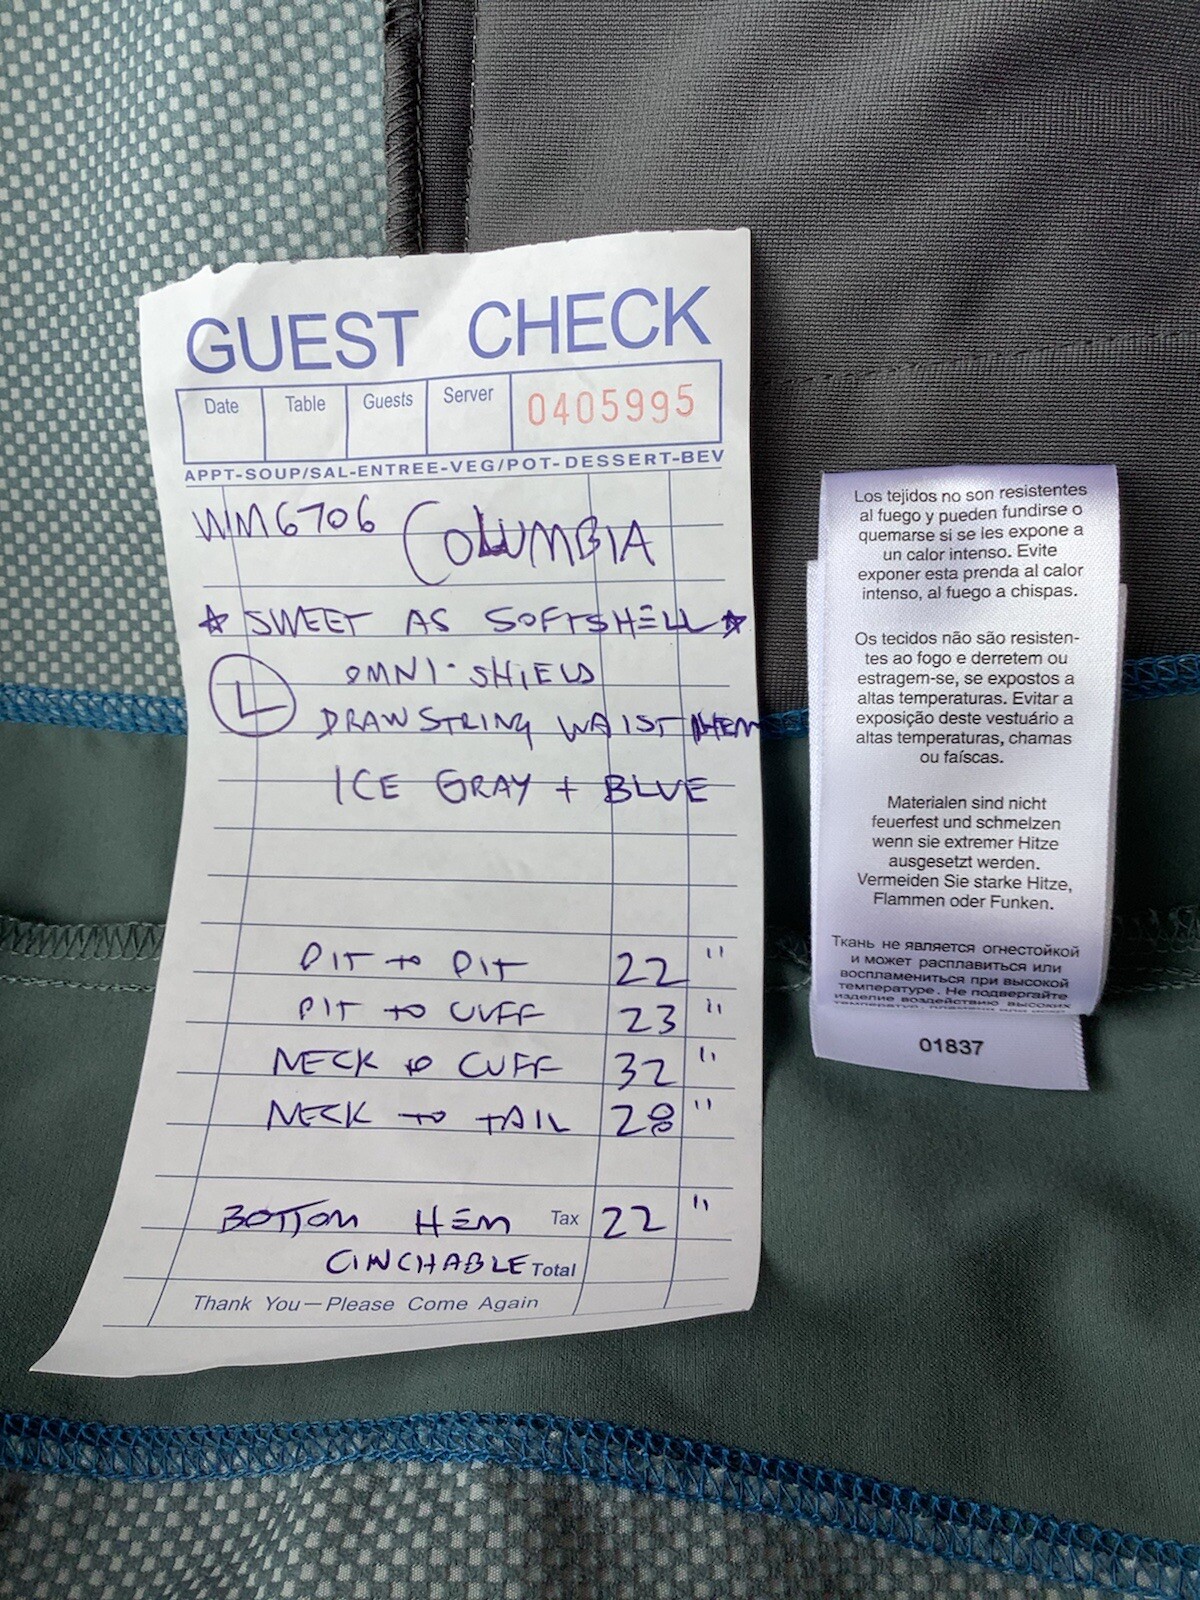 GUEST CHECK
Date Table Guests Server 0405995
APPT-SOUP/SAL-ENTREE-VEG/POT-DESSERT-BEV
WM6706 COLUMBIA
☆ SWEET AS SOFTSHELL ☆
L OMNI-SHIELD
DRAWSTRING WAIST HEM
ICE GRAY + BLUE
PIT to PIT 22"
PIT to CUFF 23"
NECK to CUFF 32"
NECK to TAIL 28"
BOTTOM HEM Tax 22"
CINCHABLE Total
Thank You—Please Come Again
Los tejidos no son resistentes
al fuego y pueden fundirse o
quemarse si se les expone a
un calor intenso. Evite
exponer esta prenda al calor
intenso, al fuego a chispas.
Os tecidos não são resisten-
tes ao fogo e derretem ou
estragem-se, se expostos a
altas temperaturas. Evitar a
exposição deste vestuário a
altas temperaturas, chamas
ou faíscas.
Materialen sind nicht
feuerfest und schmelzen
wenn sie extremer Hitze
ausgesetzt werden.
Vermeiden Sie starke Hitze,
Flammen oder Funken.
Ткань не является огнестойкой
и может расплавиться или
воспламениться при высокой
температуре. Не подвергайте
изделие воздействию высоких
01837